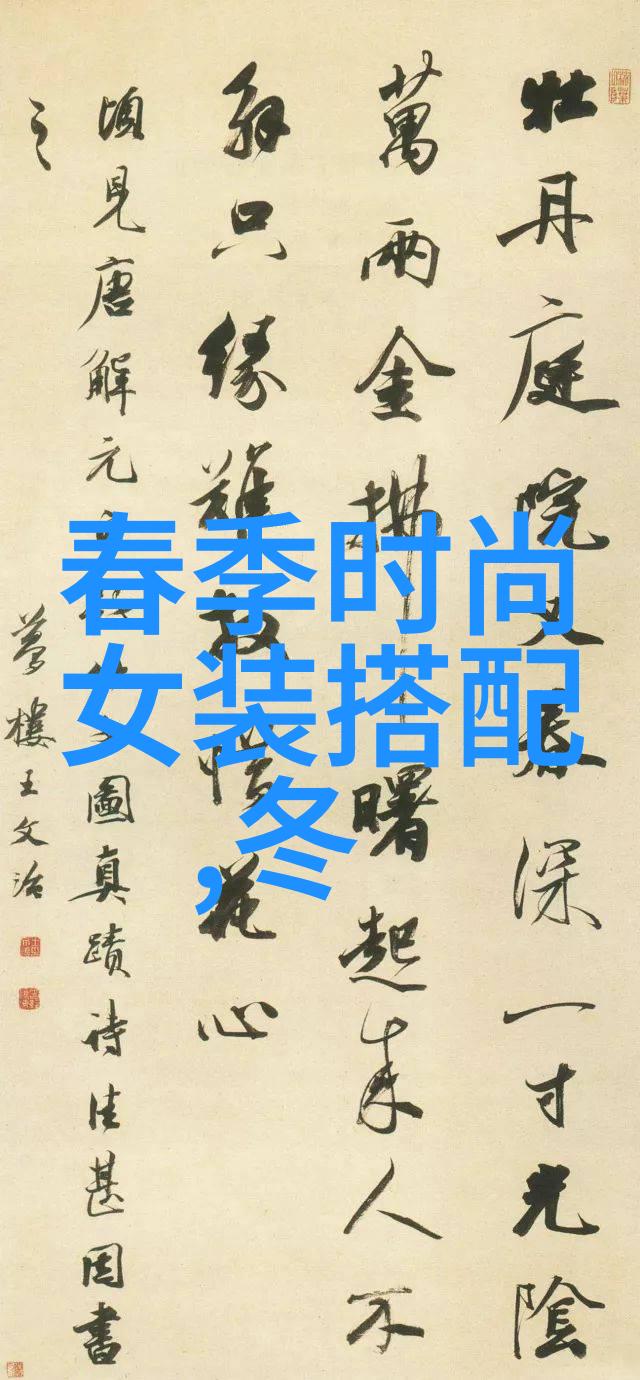 牡丹庭院又春深一寸光陰
萬兩金拂曙起來人不
解只緣難放惜花心
頃見唐解元圖真蹟詩佳甚因書
之
夢樓王文治
春季时尚
女装搭配
,冬